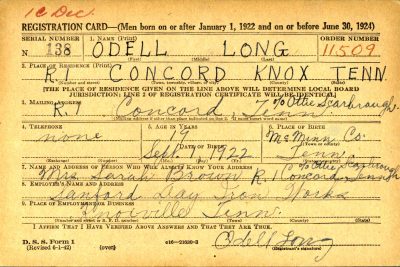 1C Dec.
REGISTRATION CARD—(Men born on or after January 1, 1922 and on or before June 30, 1924)
SERIAL NUMBER 1. NAME (Print) ORDER NUMBER
N 138 ODELL LONG 11509
(First) (Middle) (Last)
2. PLACE OF RESIDENCE (Print)
R. 1 CONCORD KNOX TENN
(Number and street) (Town, township, village, or city) (County) (State)
[THE PLACE OF RESIDENCE GIVEN ON THE LINE ABOVE WILL DETERMINE LOCAL BOARD
JURISDICTION; LINE 2 OF REGISTRATION CERTIFICATE WILL BE IDENTICAL]
3. MAILING ADDRESS
R. 1 Concord Tenn. % Ottie Scarbrough
[Mailing address if other than place indicated on line 2. If same insert word same]
4. TELEPHONE 5. AGE IN YEARS 6. PLACE OF BIRTH
none McMinn Co.
DATE OF BIRTH (Town or county)
Sept 1922 Tenn
(Exchange) (Number) (Mo.) (Day) (Yr.) (State or country)
7. NAME AND ADDRESS OF PERSON WHO WILL ALWAYS KNOW YOUR ADDRESS % Ottie Scarbrough
Mrs. Sarah Brown R. 1 Concord Tenn
8. EMPLOYER'S NAME AND ADDRESS
Sanford Day Iron Works
9. PLACE OF EMPLOYMENT OR BUSINESS
Knoxville Tenn.
(Number and street or R. F. D. number) (Town) (County) (State)
I AFFIRM THAT I HAVE VERIFIED ABOVE ANSWERS AND THAT THEY ARE TRUE.
D. S. S. Form 1
(Revised 6-1-42) (over) c16—21630-2 Odell Long
(Registrant's signature)